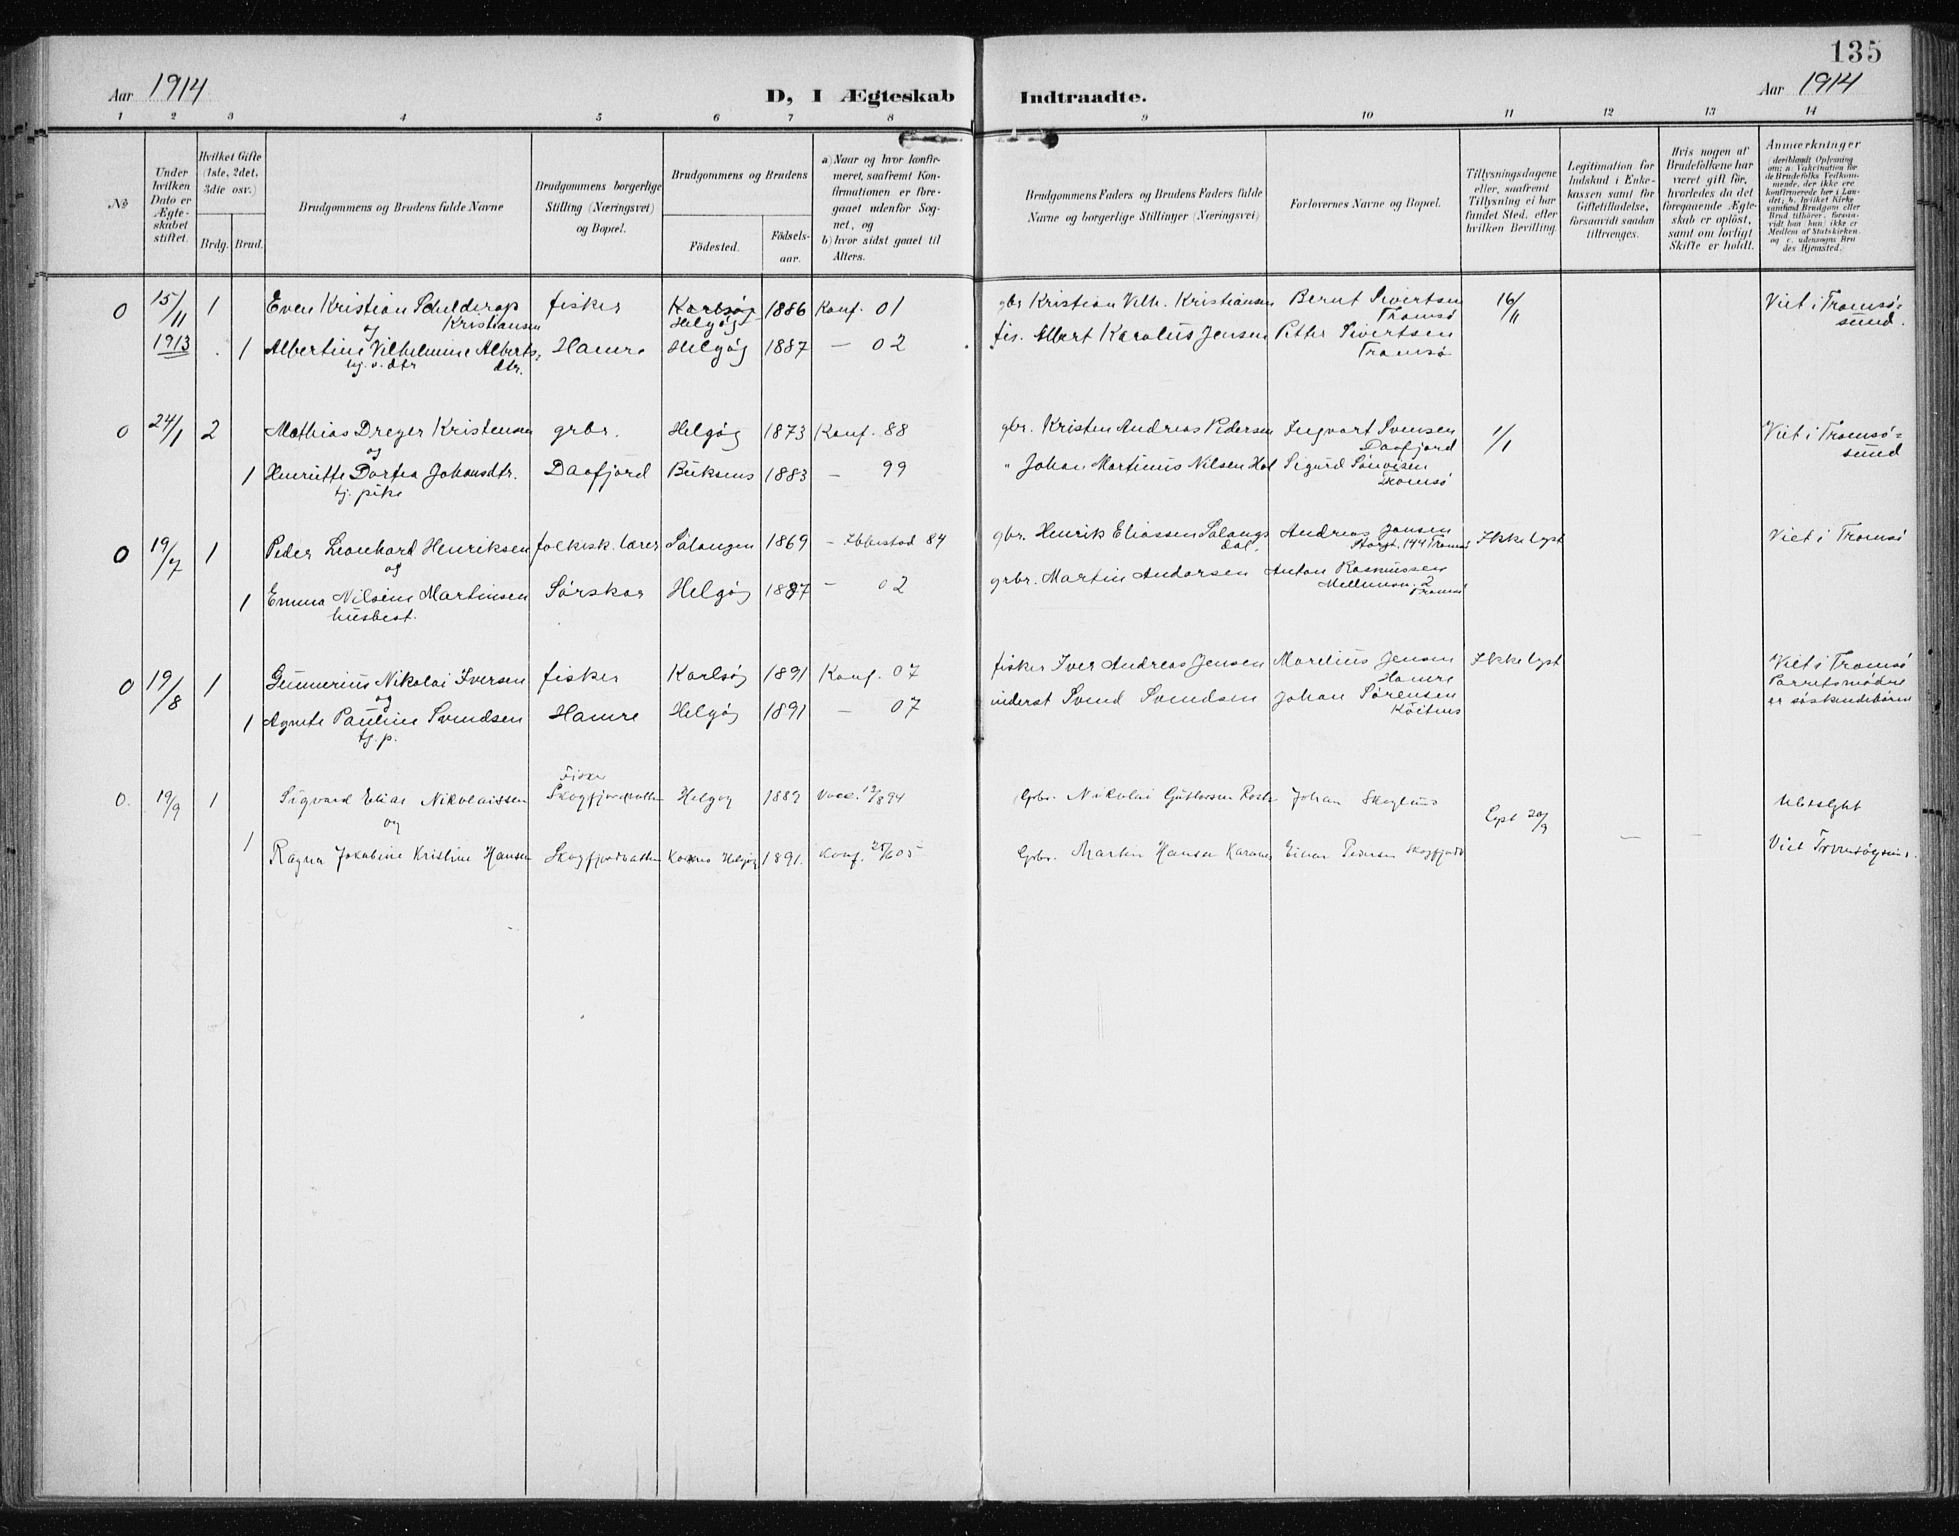 135
Aar 1914
D, I Ægteskab Indtraadte.
Aar 1914
1 2 3 4 5 6 7 8 9 10 11 12 13 14
№
Under hvilken Dato er Ægteskabet stiftet.
Hvilket Gifte (1ste, 2det, 3die osv.)
Brdg. Brud.
Brudgommens og Brudens fulde Navne
Brudgommens borgerlige Stilling (Næringsvei) og Bopæl.
Brudgommens og Brudens
Födested.
Födselsaar.
a) Naar og hvor konfirmeret, saafremt Konfirmationen er foregaaet udenfor Sognet, og
b) hvor sidst gaaet til Alters.
Brudgommens Faders og Brudens Faders fulde Navne og borgerlige Stillinger (Næringsvei)
Forlovernes Navne og Bopæl.
Tillysningsdagene eller, saafremt Tillysning ei har fundet Sted, efter hvilken Bevilling.
Legitimation for Indskud i Enkekassen samt for Giftetilladelse, forsaavidt saadan tiltrænges.
Hvis nogen af Brudefolkene har været gift för, hvorledes da det foregaaende Ægteskab er oplöst, samt om lovligt Skifte er holdt.
Anmerkninger
(deriblandt Oplysning om: a. Vakcination for de Brudefolks Vedkommende, der ikke ere konfirmerede her i Landet; b. hvilket Kirkesamfund Brudgom eller Brud tilhörer, forsaavidt han (hun) ikke er Medlem af Statskirken, og c. udensogns Brudes Hjemsted.)
0 15/11 1 Even Kristian Schulderup Kristiansen fisker Karlsøy Helgøy 1886 Konf. 01 gbr Kristian Vilh. Kristiansen Bernt Sivertsen Tromsø 16/11 Viet i Tromsøsund.
og
1913 1 Albertine Vilhelmine Albertsdtr. Hamre Helgøy 1887 — 02 fis. Albert Karolus Jensen Petter Sivertsen Tromsø
tj. v. dtr
0 24/1 2 Mathias Dreyer Kristensen grbr. Helgøy 1873 Konf. 88 gbr. Kristen Andreas Pedersen Ingvart Svensen Daafjord 1/1 Viet i Tromsøsund
og
1 Henriette Dortea Johansdtr. Daafjord 1883 — 99 " Johan Martinus Nilsen Sigurd Tromsø
tj. pike
0 19/7 1 Peder Leonhard Henriksen folkesk. lærer Salangen 1869 — Ibbestad 84 gbr. Henrik Eliassen Salangsdal. Andreas Jensen Storgt. 144 Tromsø Ikke lyst Viet i Tromsø
og
1 Emma Nilsine Martinsen Sørskar Helgøy 1887 — 02 grbr. Martin Andersen Anton Rasmussen 2 Tromsø
husbest.
0 19/8 1 Gunnerius Nikolai Iversen fisker Karlsøy 1891 Konf. 07 fisker Iver Andreas Jensen Marelius Jensen Hamre Ikke lyst Viet i Tromsø
og Parretsmødre
1 Agnete Pauline Svendsen Hamre Helgøy 1891 — 07 inderst Svend Svendsen Johan Sørensen er søskendebørn
tj. p.
0. 19/9 1 Sigvard Elias Nikolaissen Fisker Skogfjordvatten Helgøy 1889 Vacc. 12/8 94 Grbr. Nikolai Johan Lyst 20/9
og
1 Ragna Jakobine Kristine Hansen Skogfjordvatten Helgøy 1891. Konf. 25/6 05 Grbr. Martin Hansen Einar Pedersen Skogfjord Viet Tromsøysund.